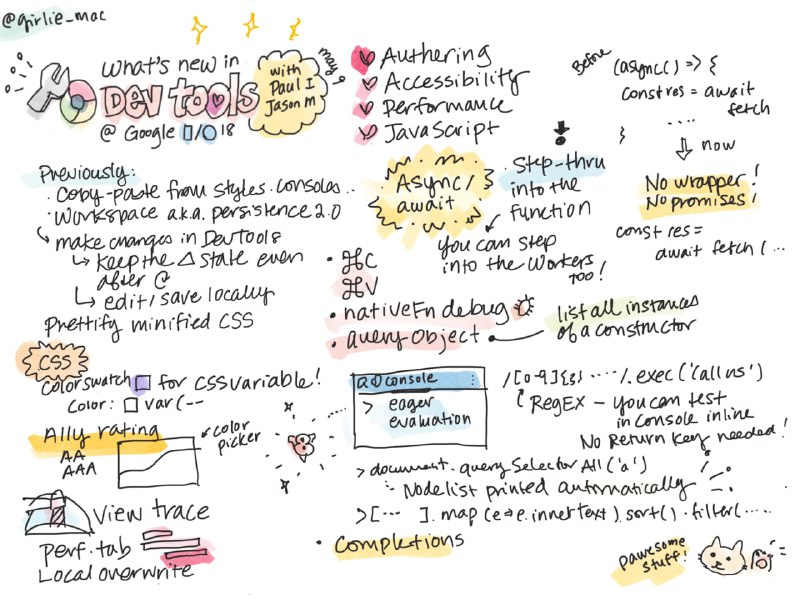 @girlie_mac
what's new in
DEV tools
@ Google I/O 18
with
Paul I
Jason M
may 9
Authering
Accessibility
Performance
JavaScript
Previously:
· Copy-paste from styles.consoles..
· Workspace a.k.a. persistence 2.0
make changes in DevTools
keep the △ state even
after
edit/save locally
Prettify minified CSS
CSS
color swatch for CSS variable!
color: □ var(--
A11y rating
AA
AAA
color
picker
view trace
perf. tab
Local overwrite
Async/
await
step-thru
into the
function
you can step
into the Workers
too!
Before
(async() => {
const res = await
fetch
....
}
now
No wrapper!
No promises!
const res =
await fetch(...
· ⌘C
⌘V
· nativeFn debug
· queryObject
list all instances
of a constructor
console
> eager
evaluation
/[0-9]{3} ..../.exec('call us')
RegEX – you can test
in console inline
No Return key needed!
> document.querySelectorAll('a')
Nodelist printed automatically
> [... ].map(e=>e.innertext).sort().filter(.....
· Completions
pawesome
stuff!